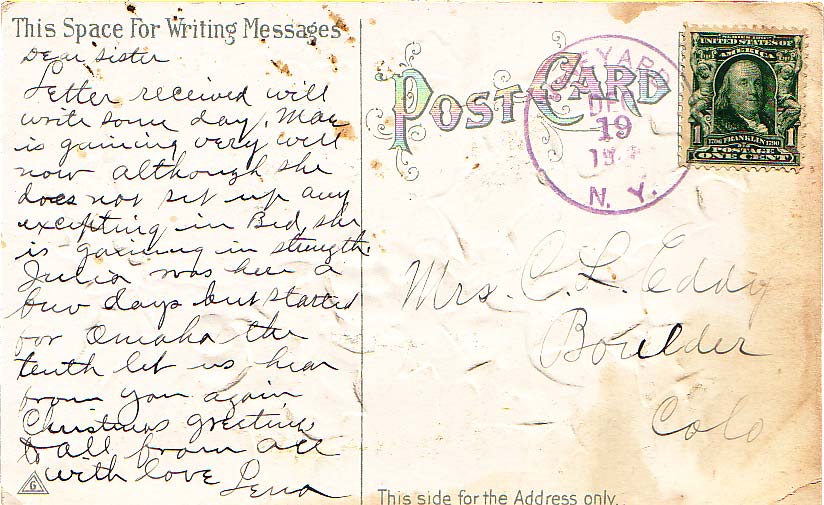 This Space For Writing Messages
Dear Sister
Letter received will
write some day. Mae
is gaining very well
now although she
does not set up any
excepting in Bed, she
is gaining in strength.
Julia was here a
few days but started
for Omaha the
tenth let us hear
from you again
Christmas greeting
to all from all
with love Lena
G
POST CARD
EYARD
DEC
19
19
N. Y.
UNITED STATES OF
AMERICA
1 1
1706 FRANKLIN 1790
POSTAGE
ONE CENT
Mrs. C. L. Eddy
Boulder
Colo
This side for the Address only.